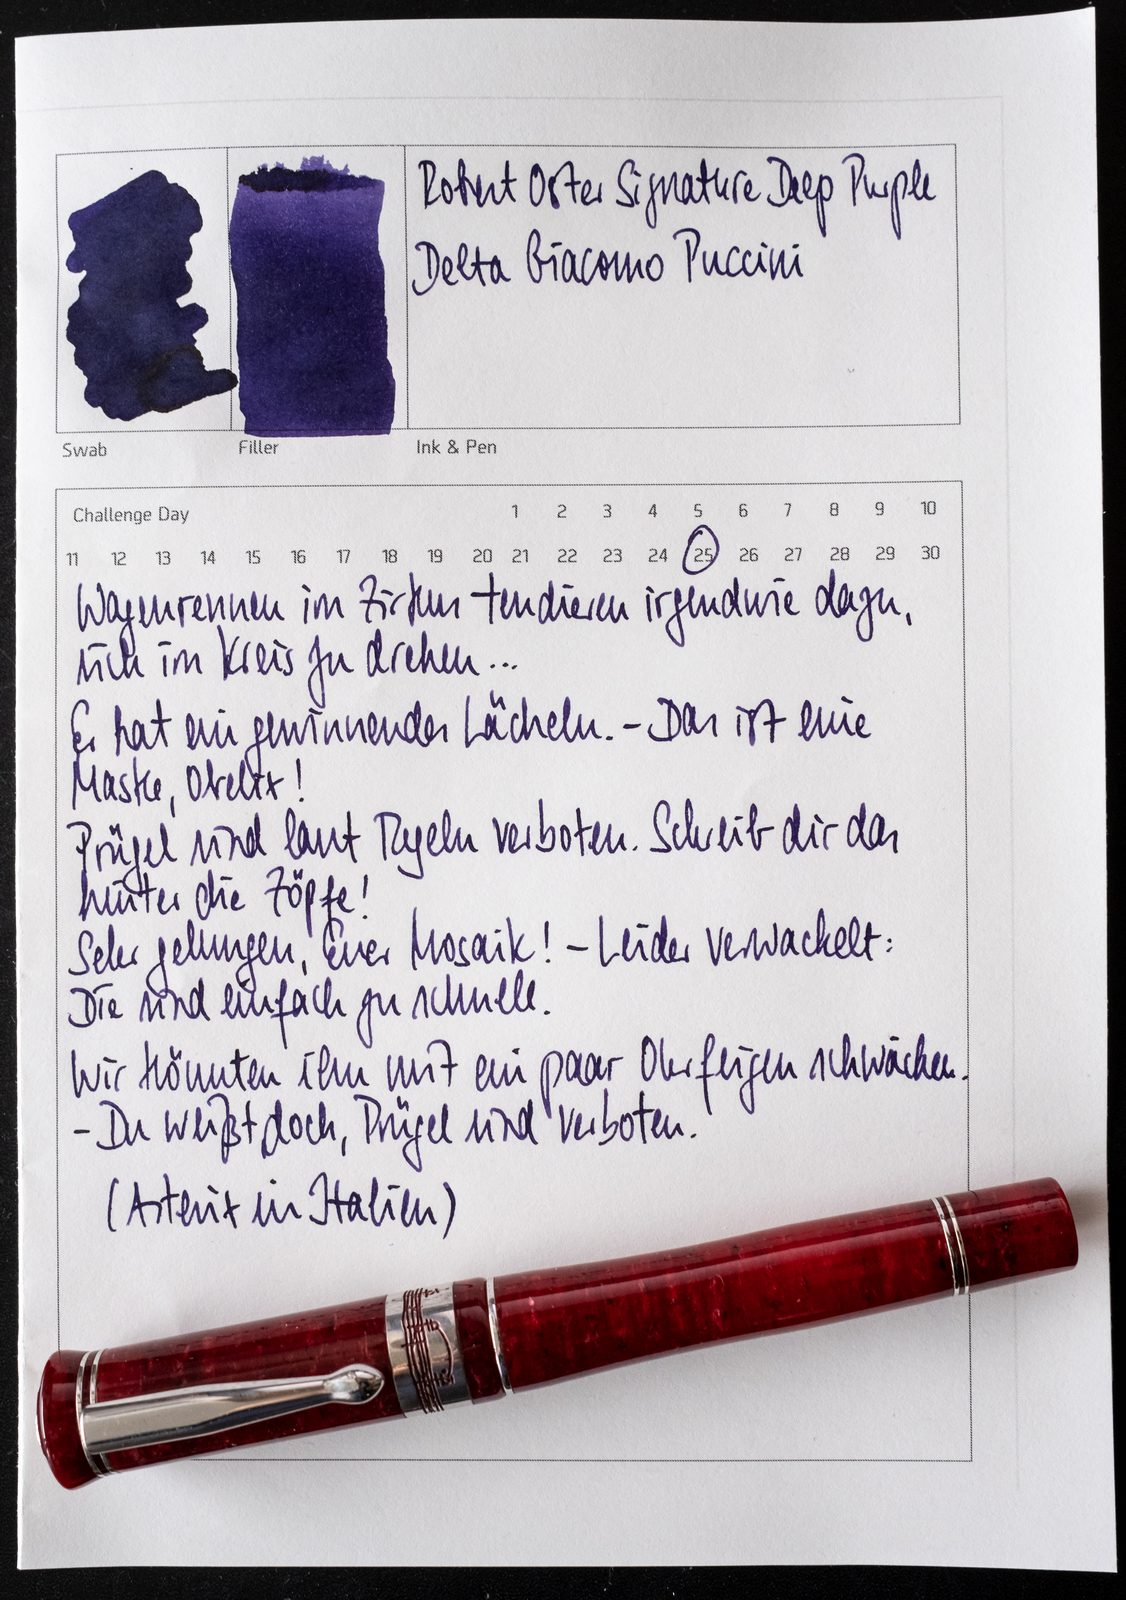 Robert Oster Signature Deep Purple
Delta Giacomo Puccini
Swab Filler Ink & Pen
Challenge Day 1 2 3 4 5 6 7 8 9 10
11 12 13 14 15 16 17 18 19 20 21 22 23 24 25 26 27 28 29 30
Wagenrennen im Zirkus tendieren irgendwie dazu,
sich im Kreis zu drehen...
Er hat ein gewinnendes Lächeln. – Das ist eine
Maske, Obelix!
Prügel sind laut Regeln verboten. Schreib dir das
hinter die Zöpfe!
Sehr gelungen, Euer Mosaik! – Leider verwackelt:
Die sind einfach zu schnell.
Wir könnten ihn mit ein paar Ohrfeigen schwächen.
– Du weißt doch, Prügel sind verboten.
(Asterix in Italien)